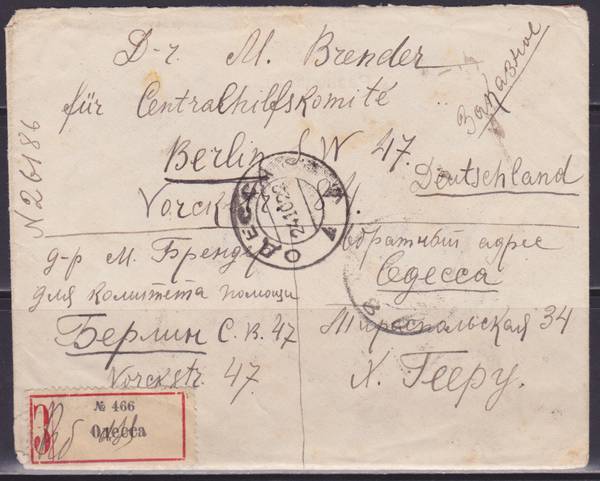 D-r. M. Brender
für Centralhilfskomité
Заказное
Berlin S W 47.
Deutschland
N 26186
ОДЕССА
24.10.22
д-р М. Бренде
для комитета помощи
Берлин С. В. 47
Yorckstr. 47.
Обратный адрес
Одесса
Тираспольская 34
Х. Гееру.
З
№ 466
Одесса